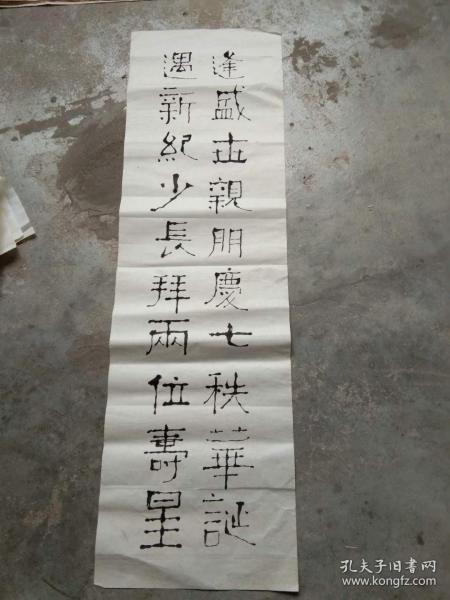 逢盛世親朋慶七秩華誕
遇新紀少長拜兩位壽星
孔夫子旧书网
www.kongfz.com